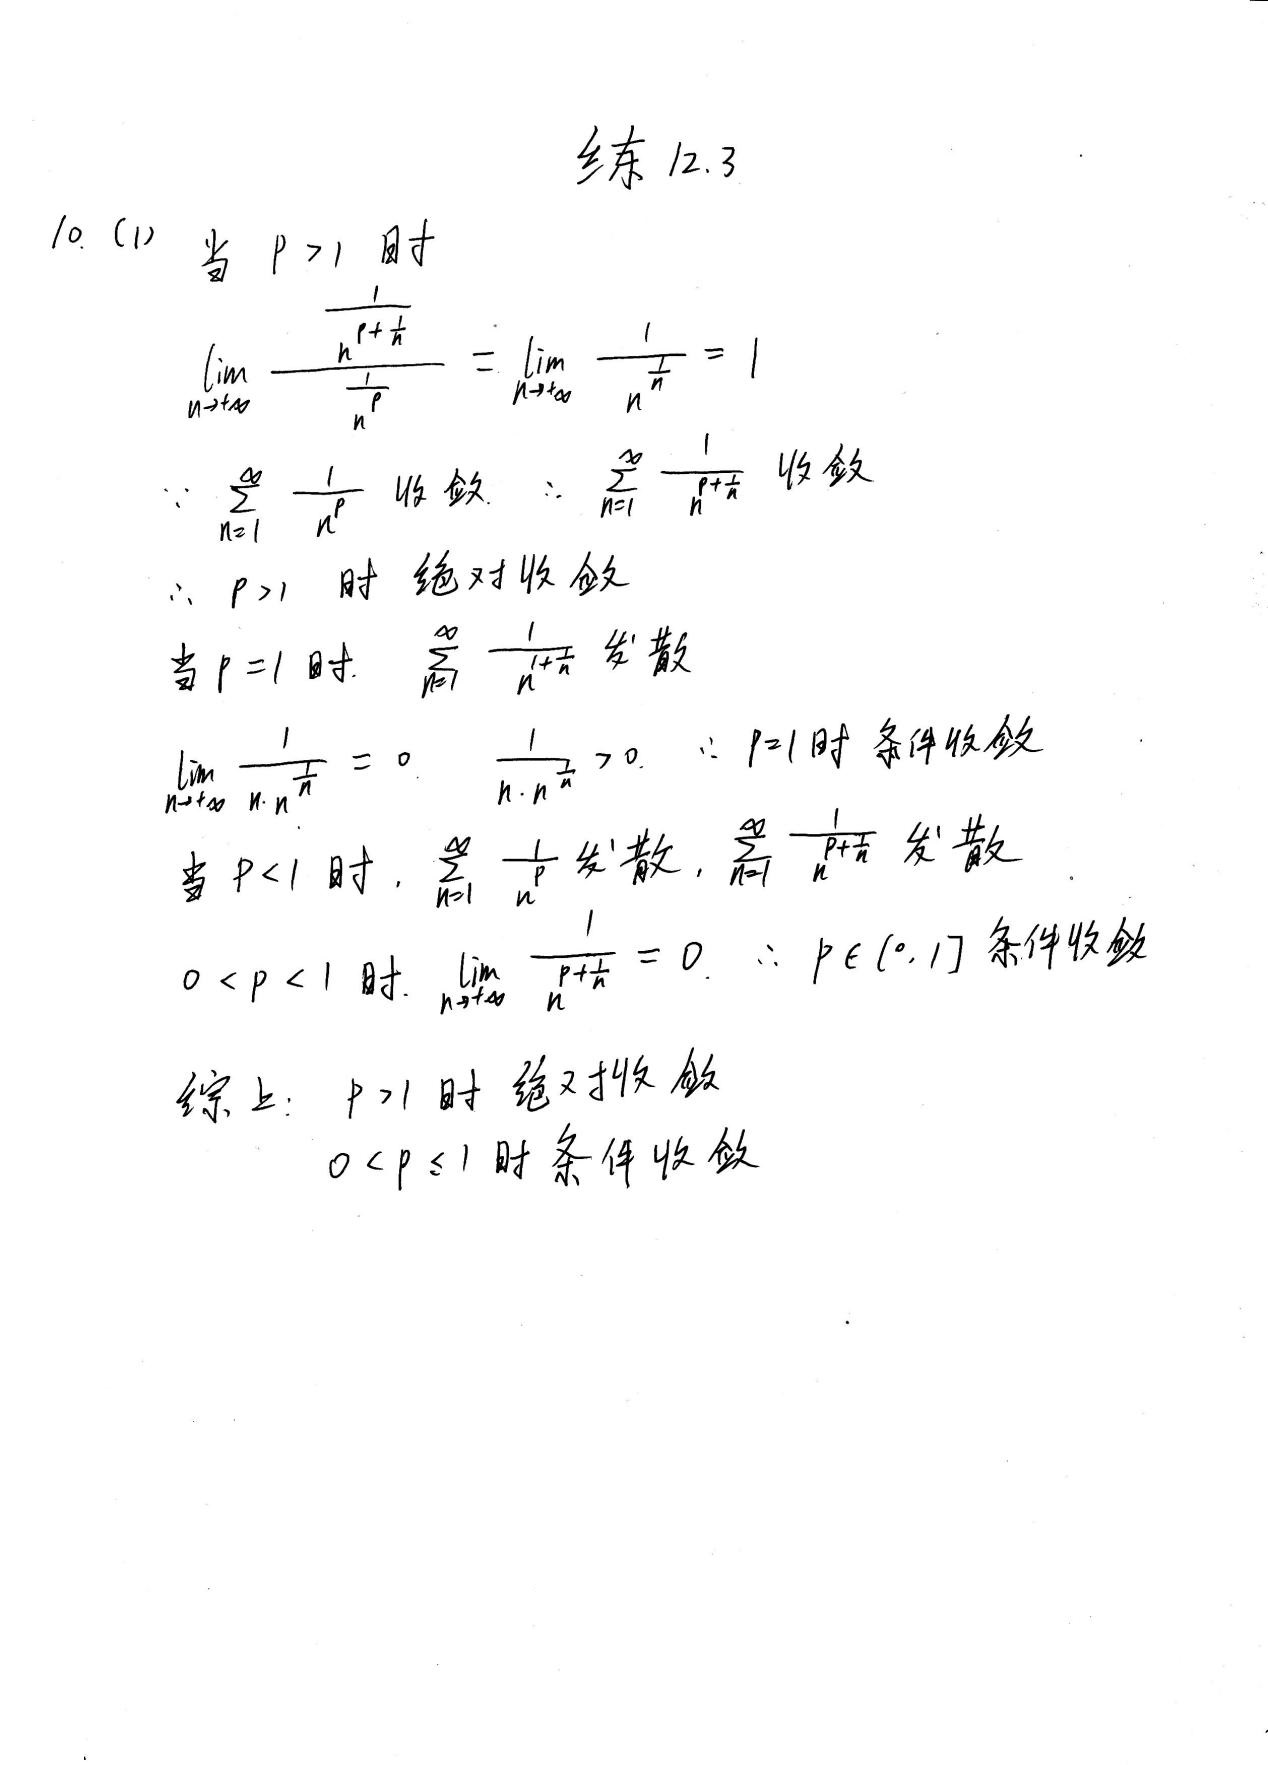 练 12.3
10. (1) 当 p > 1 时
lim_{n→+∞} \frac{\frac{1}{n^{p+\frac{1}{n}}}}{\frac{1}{n^p}} = lim_{n→+∞} \frac{1}{n^{\frac{1}{n}}} = 1
∵ ∑_{n=1}^{∞} \frac{1}{n^p} 收敛. ∴ ∑_{n=1}^{∞} \frac{1}{n^{p+\frac{1}{n}}} 收敛
∴ p>1 时 绝对收敛
当 p=1 时. ∑_{n=1}^{∞} \frac{1}{n^{1+\frac{1}{n}}} 发散
lim_{n→+∞} \frac{1}{n·n^{\frac{1}{n}}} = 0 \frac{1}{n·n^{\frac{1}{n}}} > 0. ∴ p=1 时 条件收敛
当 p<1 时, ∑_{n=1}^{∞} \frac{1}{n^p} 发散, ∑_{n=1}^{∞} \frac{1}{n^{p+\frac{1}{n}}} 发散
0<p<1 时. lim_{n→+∞} \frac{1}{n^{p+\frac{1}{n}}} = 0. ∴ p∈(0,1] 条件收敛
综上: p>1 时 绝对收敛
0<p≤1 时 条件收敛